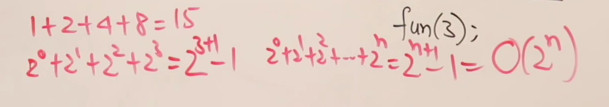 1+2+4+8=15
fun(3);
2⁰+2¹+2²+2³=2³⁺¹-1 2⁰+2¹+2²+---+2ⁿ=2ⁿ⁺¹-1=O(2ⁿ)